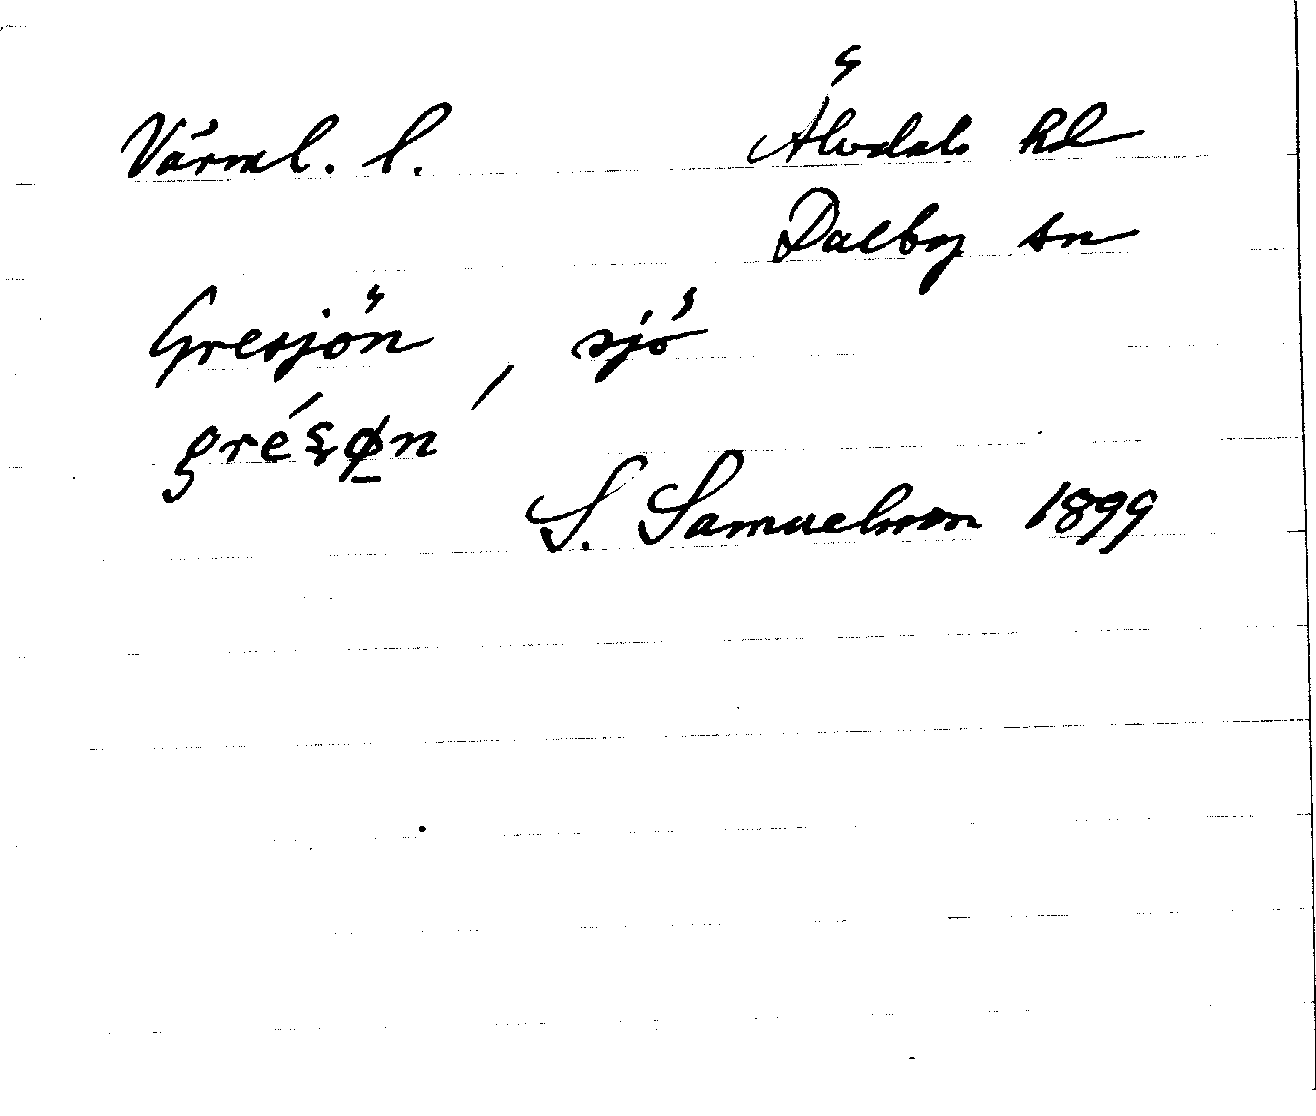 Värml. l. Älvdals hd
Dalby sn
Gresjön, sjö
S. Samuelsson 1899